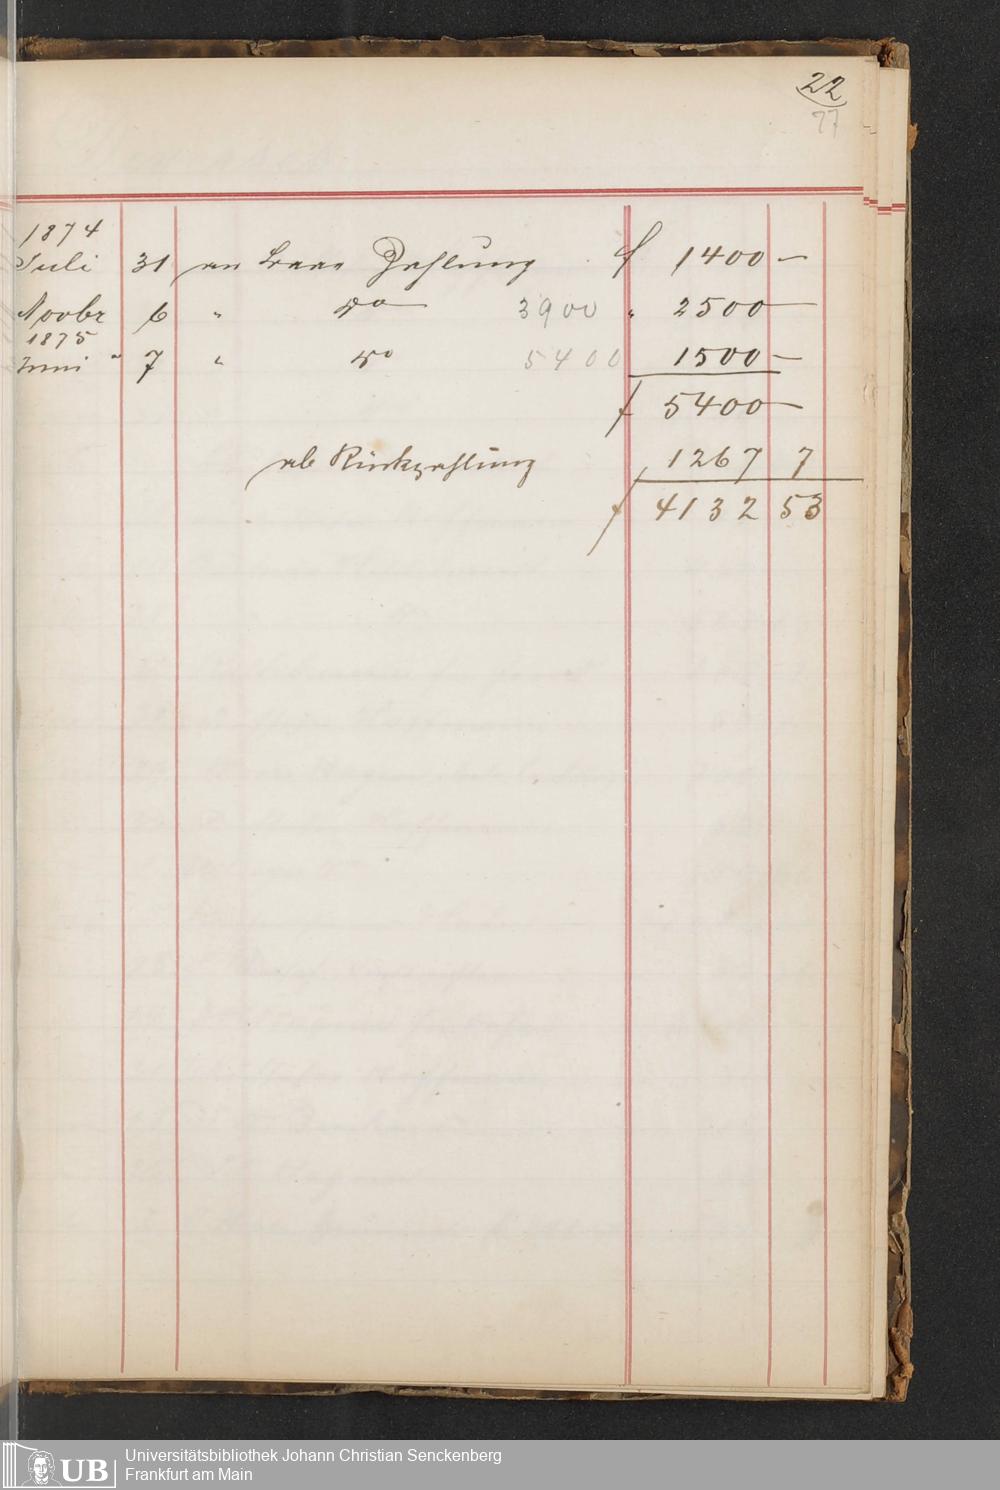 22
77
1874
Juli 31 an baar Zahlung f 1400 —
Novbr 6 " do 3900 " 2500 —
1875
Juni " 7 " do 5400 1500 —
f 5400 —
ab Rückzahlung 1267 7
f 4132 53
UB
Universitätsbibliothek Johann Christian Senckenberg
Frankfurt am Main